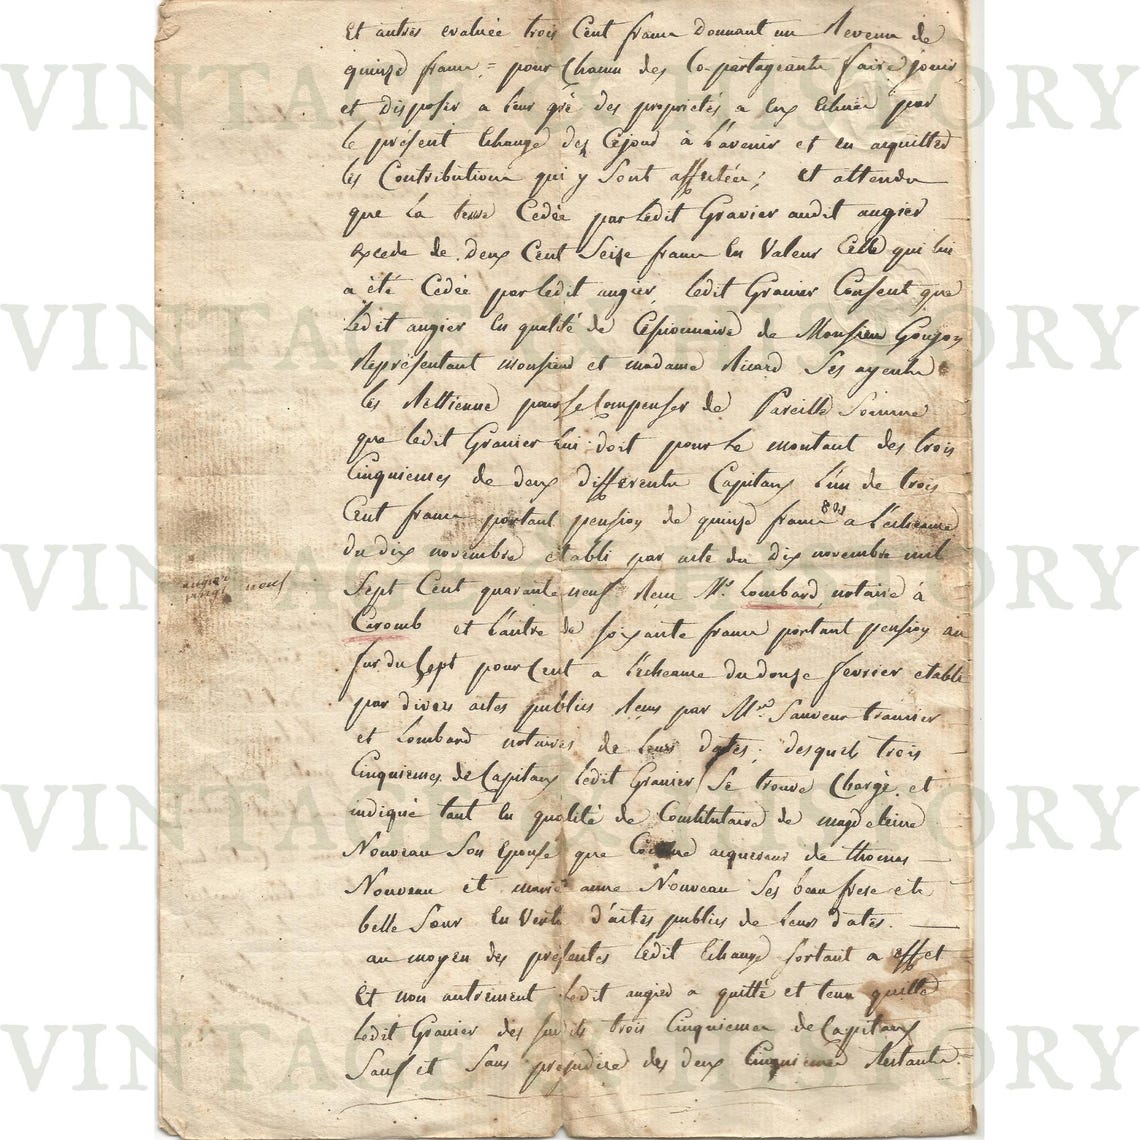 VINTAGE & HISTORY
et autres evaluée trois Cent francs Donnant un Revenu de
quinze francs = pour Chacun des Co-partageants faire jouir
et disposer a leur gré des proprietés a eux Echues par
le présent Echange des Cejourd à l'avenir et en acquitter
les Contributions qui y Sont affectées; et attendu
que la terre Cedée par ledit Granier audit augier
excede de deux Cent Seize francs en Valeur Celle qui lui
a été Cédée par ledit augier, ledit Granier Consent que
ledit augier en qualité de Cessionnaire de Monsieur Goujon
Représentant monsieur et madame Ricard Ses ayents
les Rettienne pour se Compenser de Pareille Somme
que ledit Granier lui doit pour le montant des trois
Cinquiemes de deux differents Capitaux l'un de trois
Cent francs portant pension de quinze francs à l'echeance
du dix novembre etabli par acte du Dix novembre mil
Sept Cent quarante neuf Recu Me. Lombard, notaire à
augier nouf
Caromb et l'autre de soixante francs portant pension au
fur du Sept pour Cent a l'écheance du douze fevrier etabli
par divers actes publics Reçus par Mes. Sauveur travisier
et Lombard notaires de leurs dates; desquels trois
Cinquiemes de Capitaux ledit Granier Se trouve Chargé et
indiqué tant en qualité de Constitutaire de magdeleine
Nouveau Son Epouse que Comme acquereur de thomas
Nouveau et marie anne Nouveau Ses beau frere et
belle Sœur en Vertu d'actes publics de leurs dates.
au moyen des présentes ledit Echange Sortant a effet
Et non autrement ledit augier a quitté et tenu quitte
ledit Granier des susdits trois Cinquiemes de Capitaux
Sauf et Sans prejudice des deux Cinquiemes Restants.